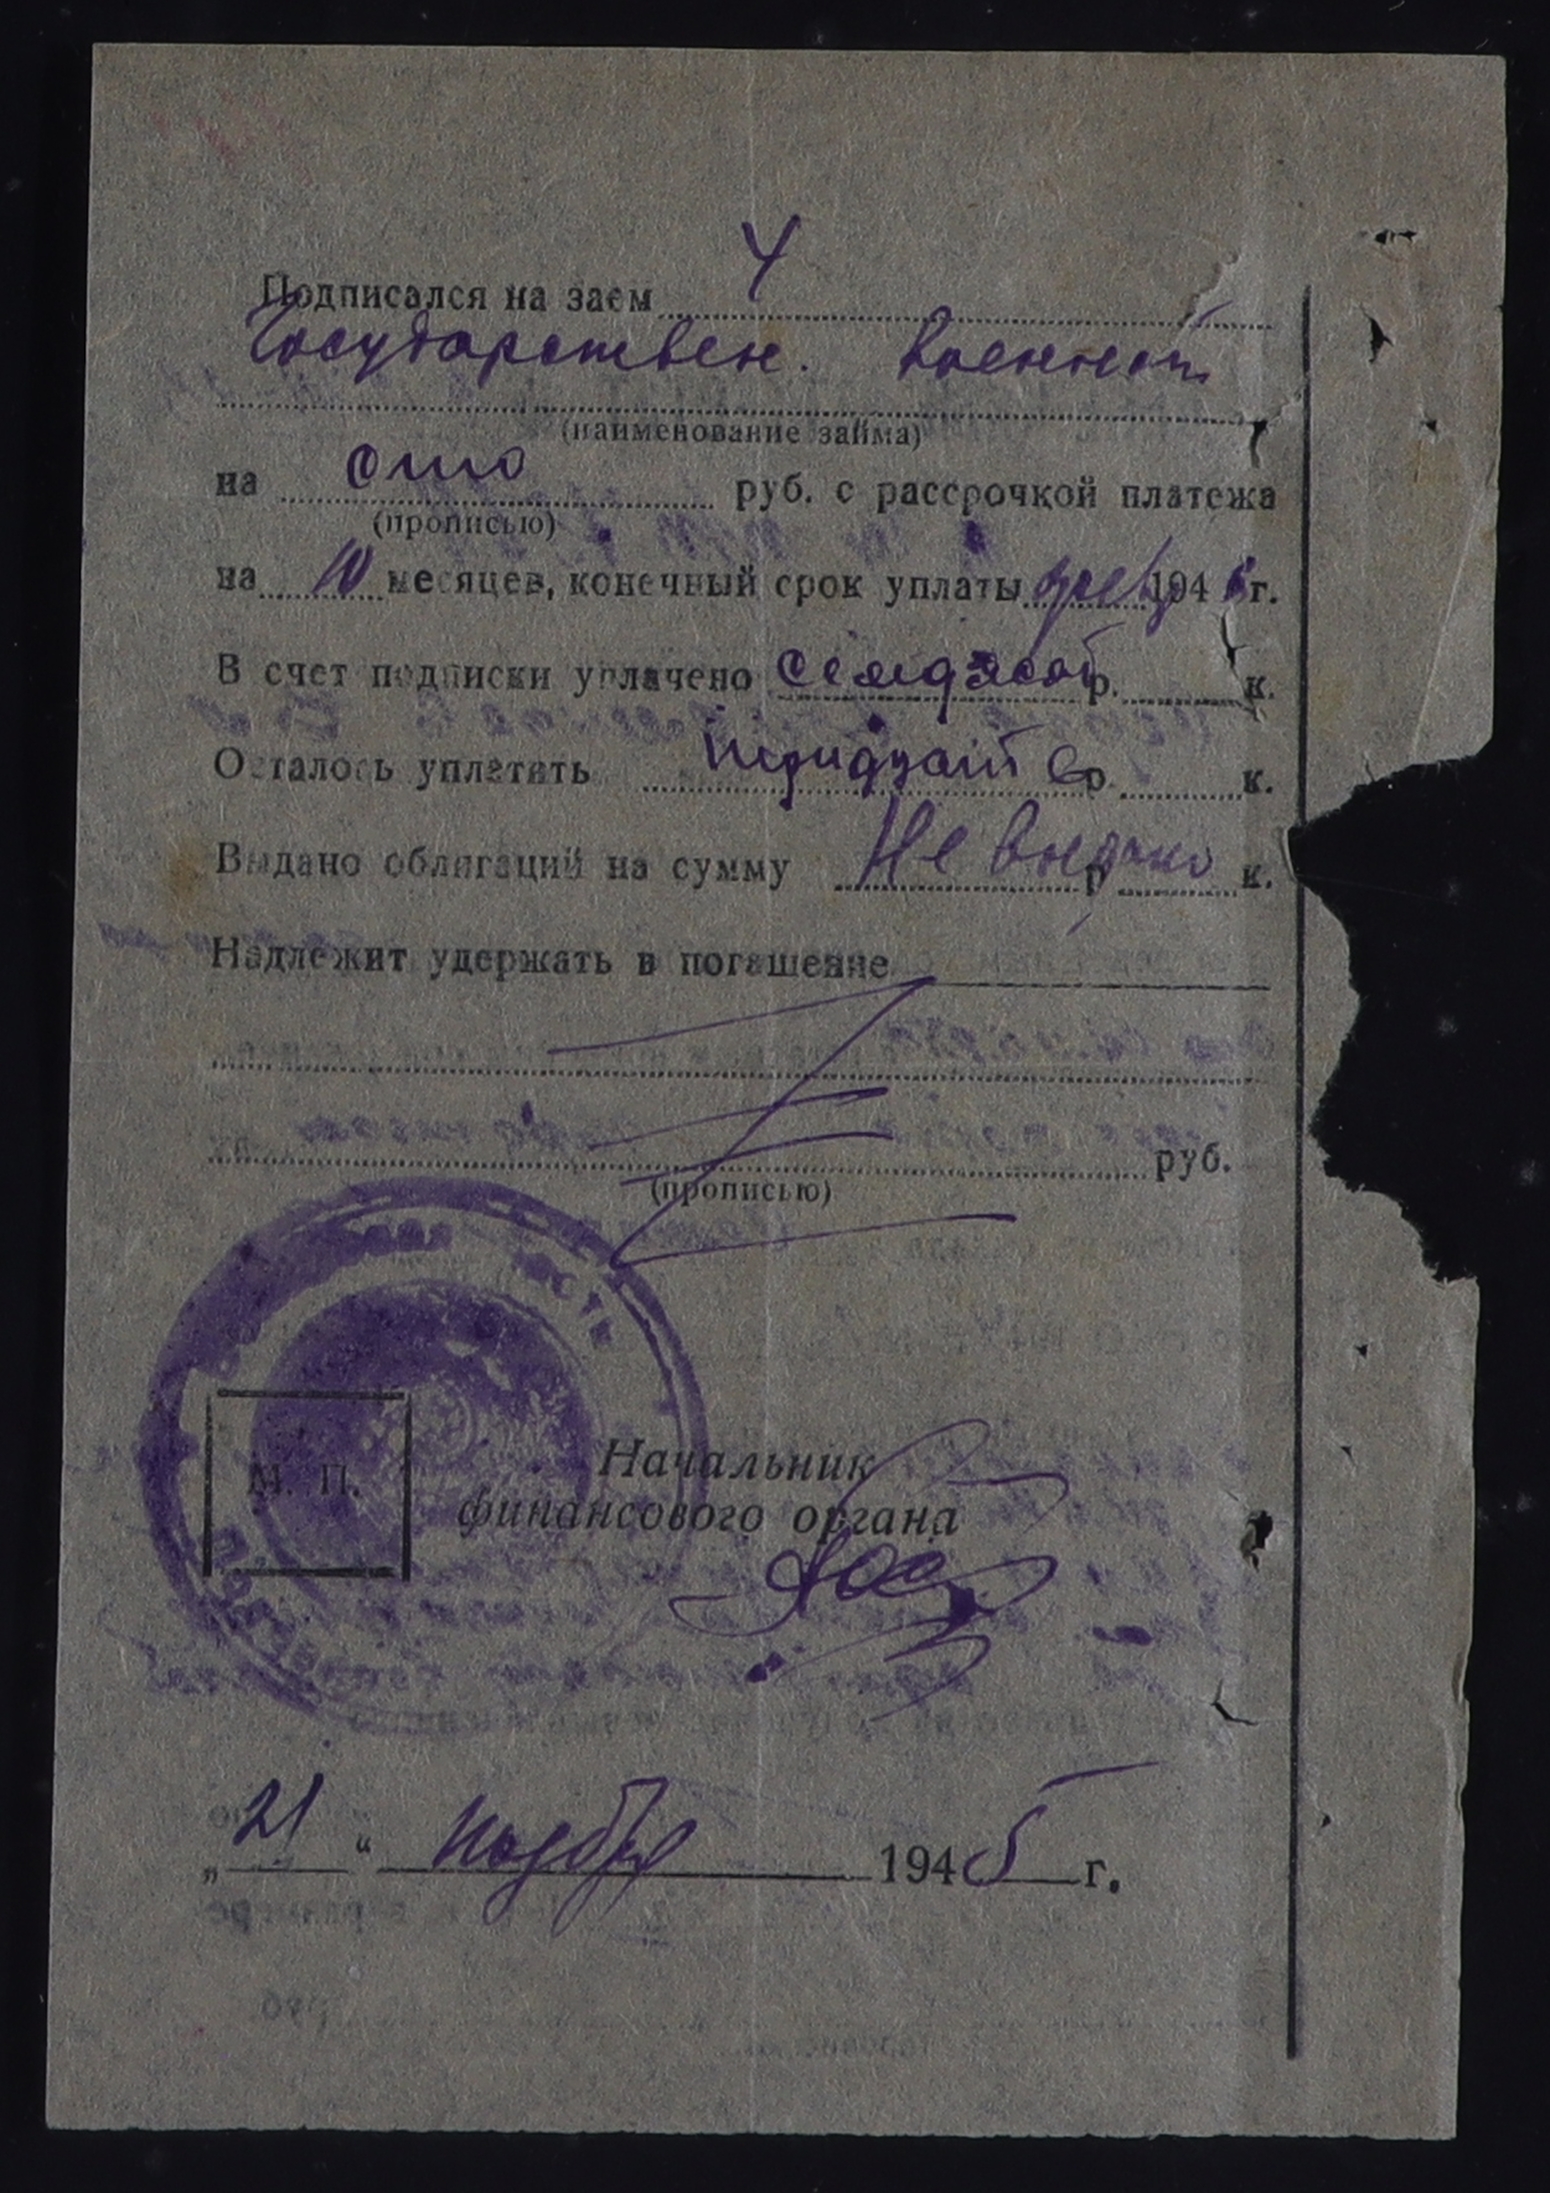 Подписался на заем 4
Государствен. Военный
(наименование займа)
на сто руб. с рассрочкой платежа
(прописью)
на 10 месяцев, конечный срок уплаты 194 г.
В счет подписки уплачено семдясот р. к.
Осталось уплатить тридцать р. к.
Выдано облигаций на сумму Не выдано р. к.
Надлежит удержать в погашение
руб.
(прописью)
М. П.
Начальник
финансового органа
„21“ ноября 1945 г.